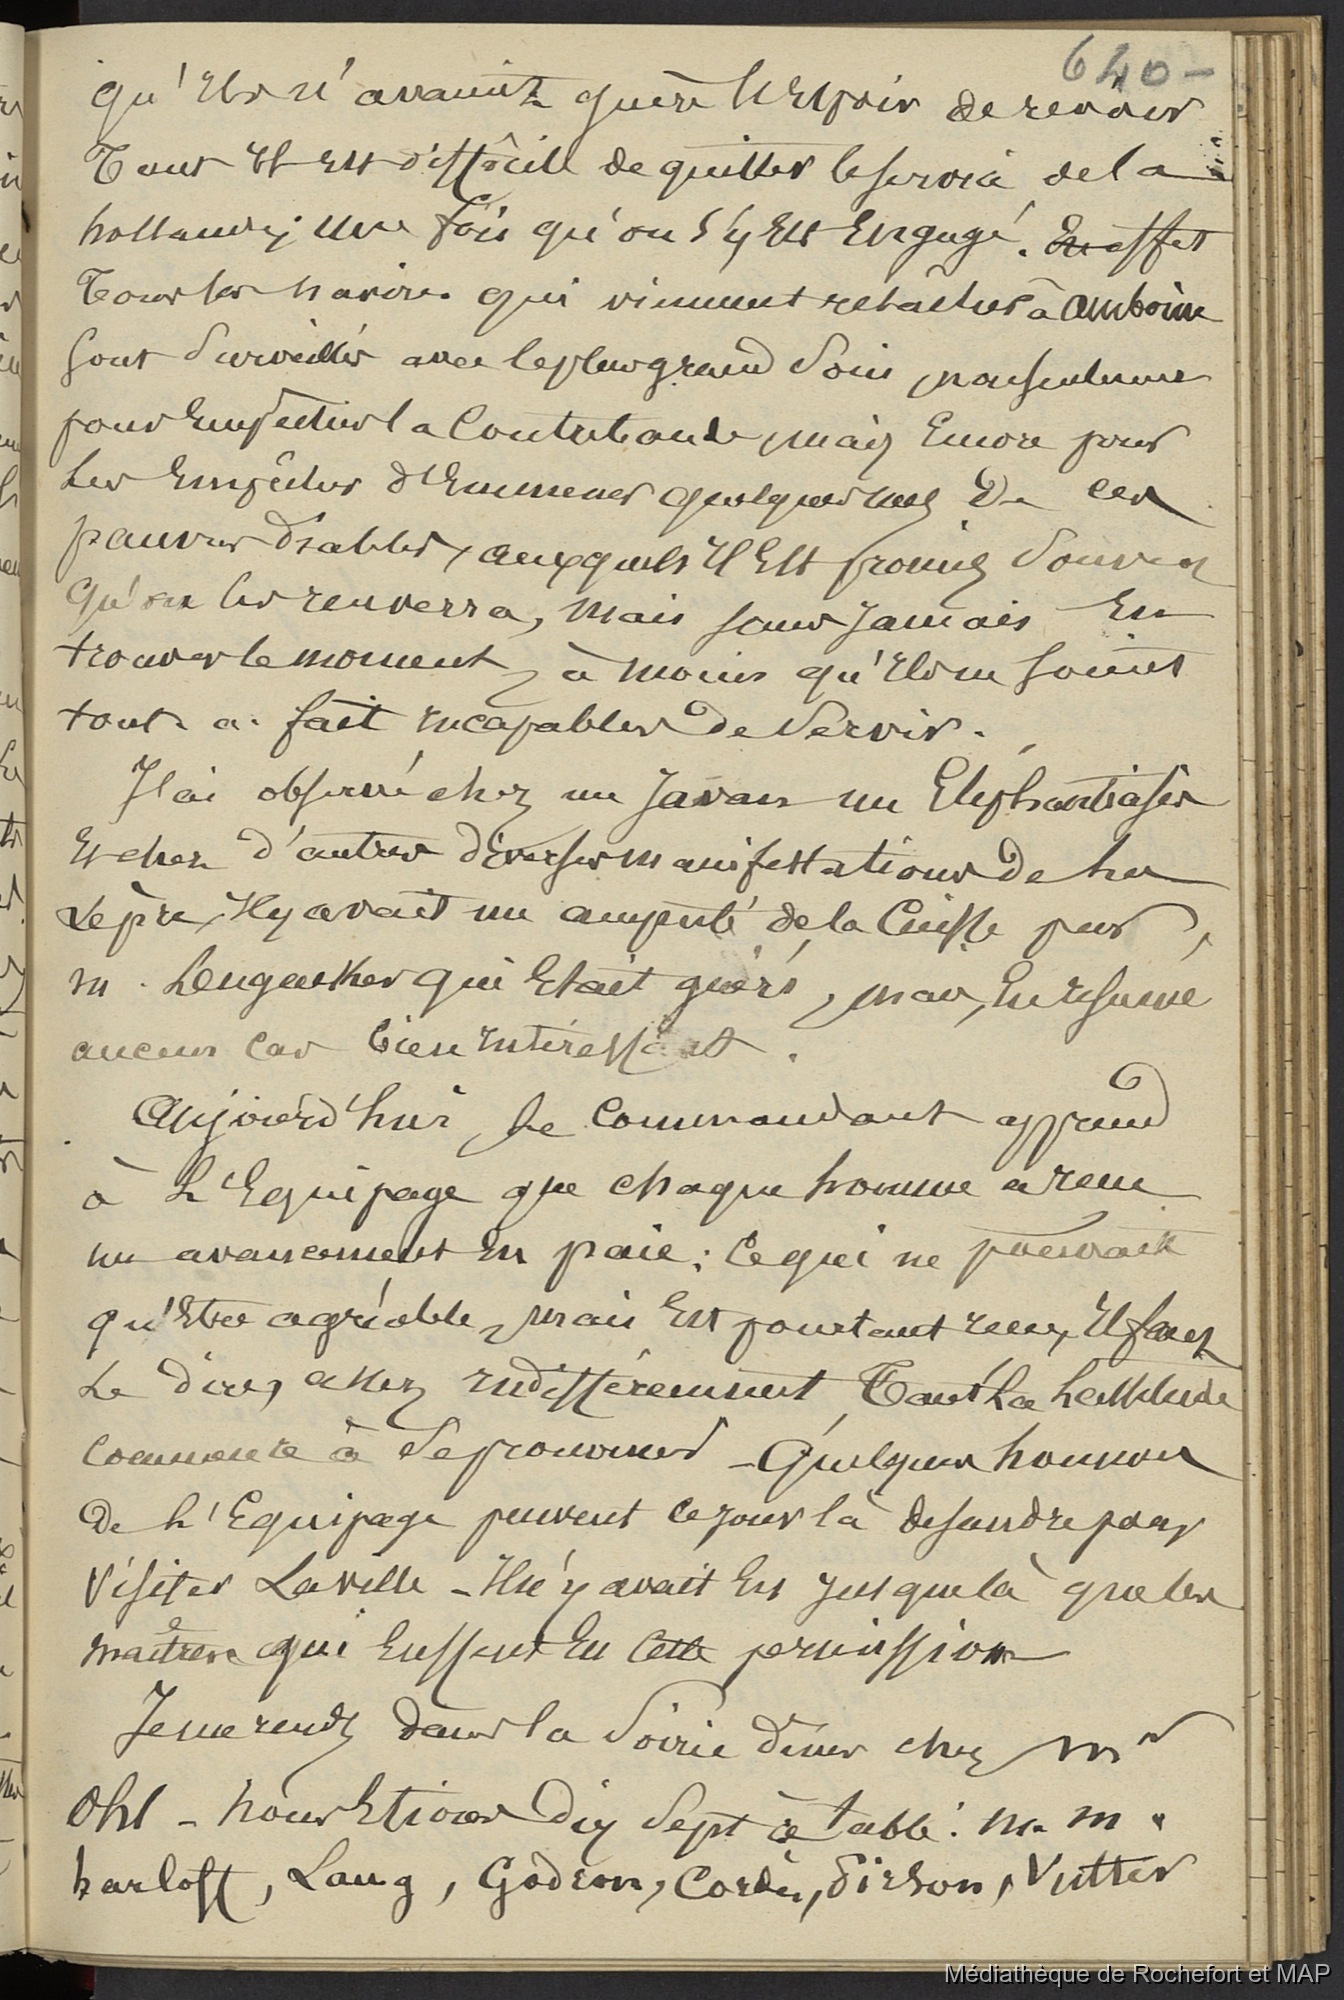 640-
qu'ils n'avaient guère l'Espoir de revoir
Tant il est difficile de quitter le service de la
hollande, une fois qu'on s'y est Engagé. En effet
Tous les navires qui viennent relâcher à amboine
sont surveillés avec le plus grand soin, non seulement
pour Empêcher la Contrebande, mais Encore pour
les Empêcher d'Emmener quelques uns de ces
pauvres diables, auxquels il est promis souvent
qu'on les renverra, mais sans jamais En
trouver le moment, à moins qu'ils ne soient
tout a fait incapables de servir.
J'ai observé chez un Javan un Eléphantiasis
et chez d'autres diverses manifestations de la
Lèpre, il y avait un amputé de la Cuisse par
m. Lengacker qui Etait guéri, mais, En résumé
aucun cas bien intéressant.
Aujourd'hui, le Commandant apprend
à l'Equipage que chaque homme a reçu
un avancement En paie; ce qui ne pouvait
qu'Etre agréable, mais Est pourtant reçu, il faut
le dire, assez indifféremment, Tant la lassitude
commence à se prononcer - Quelques hommes
de l'Equipage peuvent ce jour là descendre pour
visiter La ville - Il n'y avait Eu jusque là que les
maîtres qui Eussent Eu cette permission
Je me rends dans la soirée dîner chez mr
Ohl - nous Etions dix sept à table: m. m.
harloff, Lang, Godron, Cordes, , Vutter
Médiathèque de Rochefort et MAP